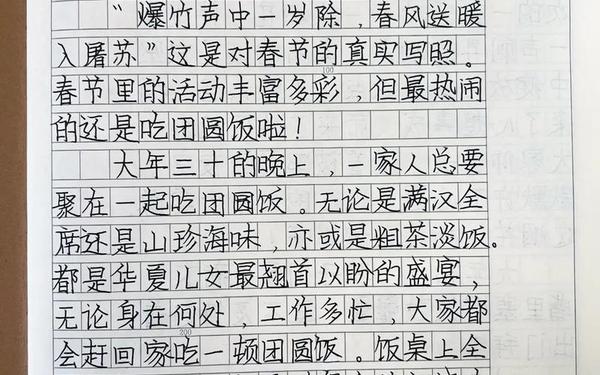 “爆竹声中一岁除，春风送暖
入屠苏”这是对春节的真实写照。
春节里的活动丰富多彩，但最热闹
100
的还是吃团圆饭啦！
大年三十的晚上，一家人总要
聚在一起吃团圆饭。无论是满汉全
席还是山珍海味，亦或是粗茶淡饭。
都是华夏儿女最翘首以盼的盛宴，
无论身在何处，工作多忙，大家都
200
会赶回家吃一顿团圆饭。饭桌上全